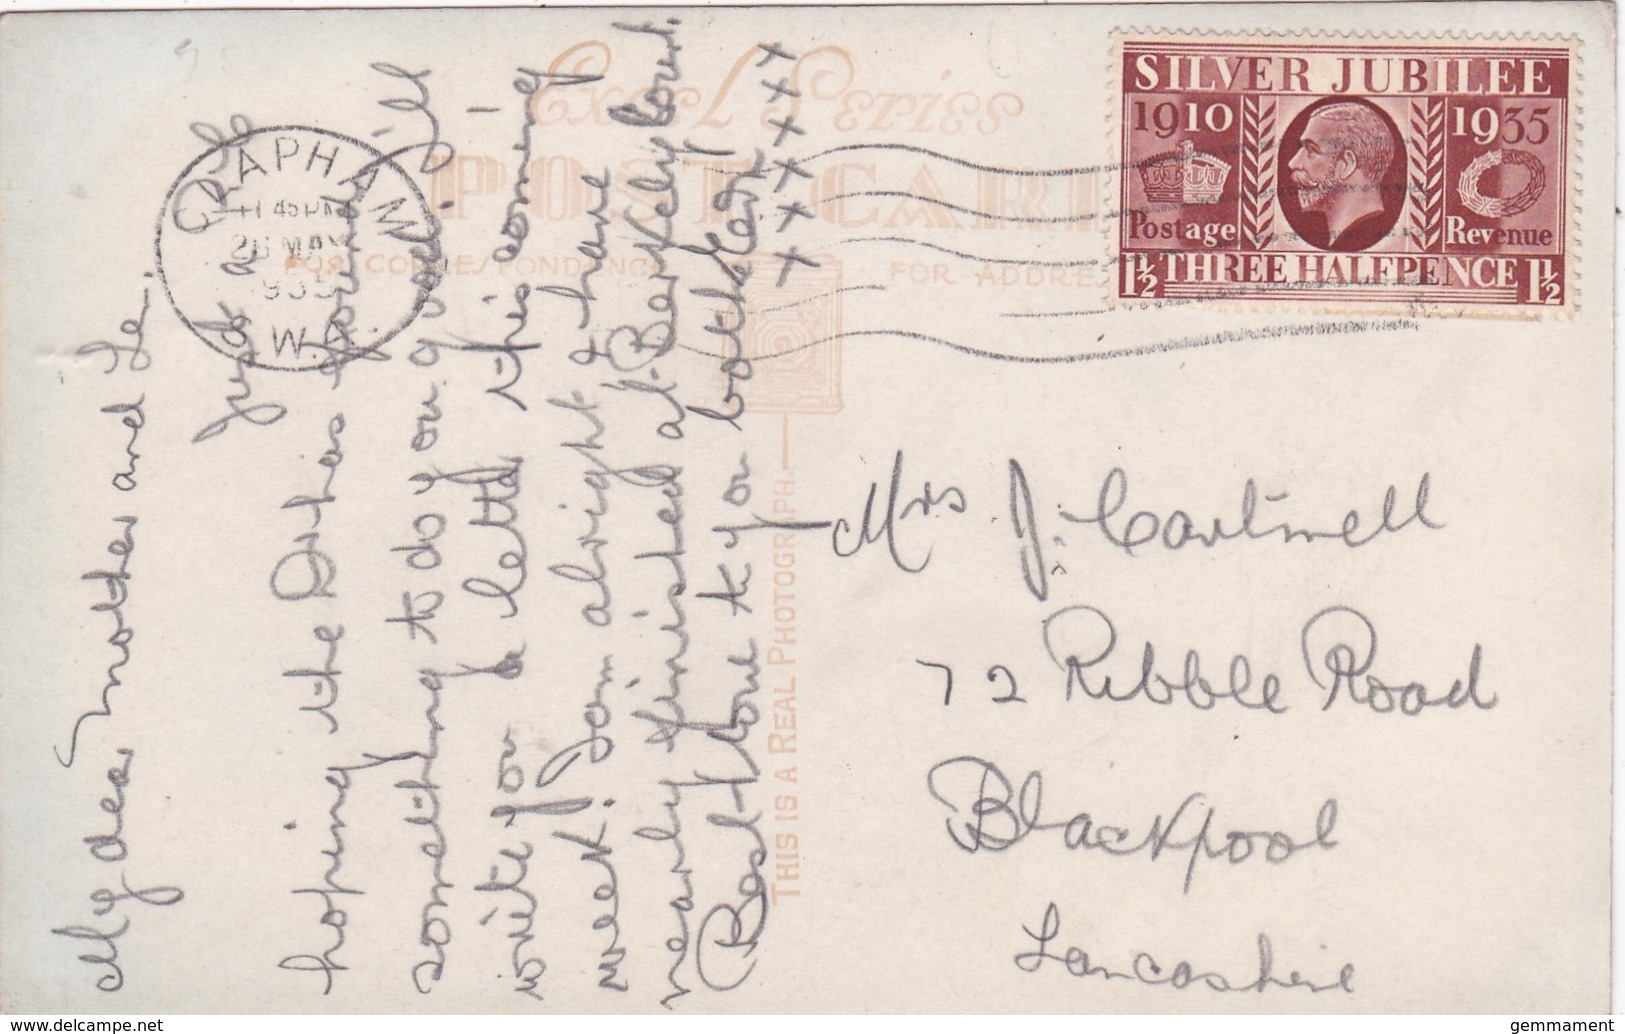 Excel Series
POST CARD
FOR CORRESPONDENCE
FOR ADDRESS
THIS IS A REAL PHOTOGRAPH.
SILVER JUBILEE
1910
1935
Postage
Revenue
1½ THREE HALFPENCE 1½
CLAPHAM
11 45 PM
26 MAY
1935
My dear Mother and Le.
Just a
hoping the has found
something to do you good. I'll
write you a letter this coming
week. I am alright & have
nearly finished at Berkely Court.
Best love to you both Len
x x x x x x x
Mrs J. Cartmell
72 Ribble Road
Blackpool
Lancashire
gemmament